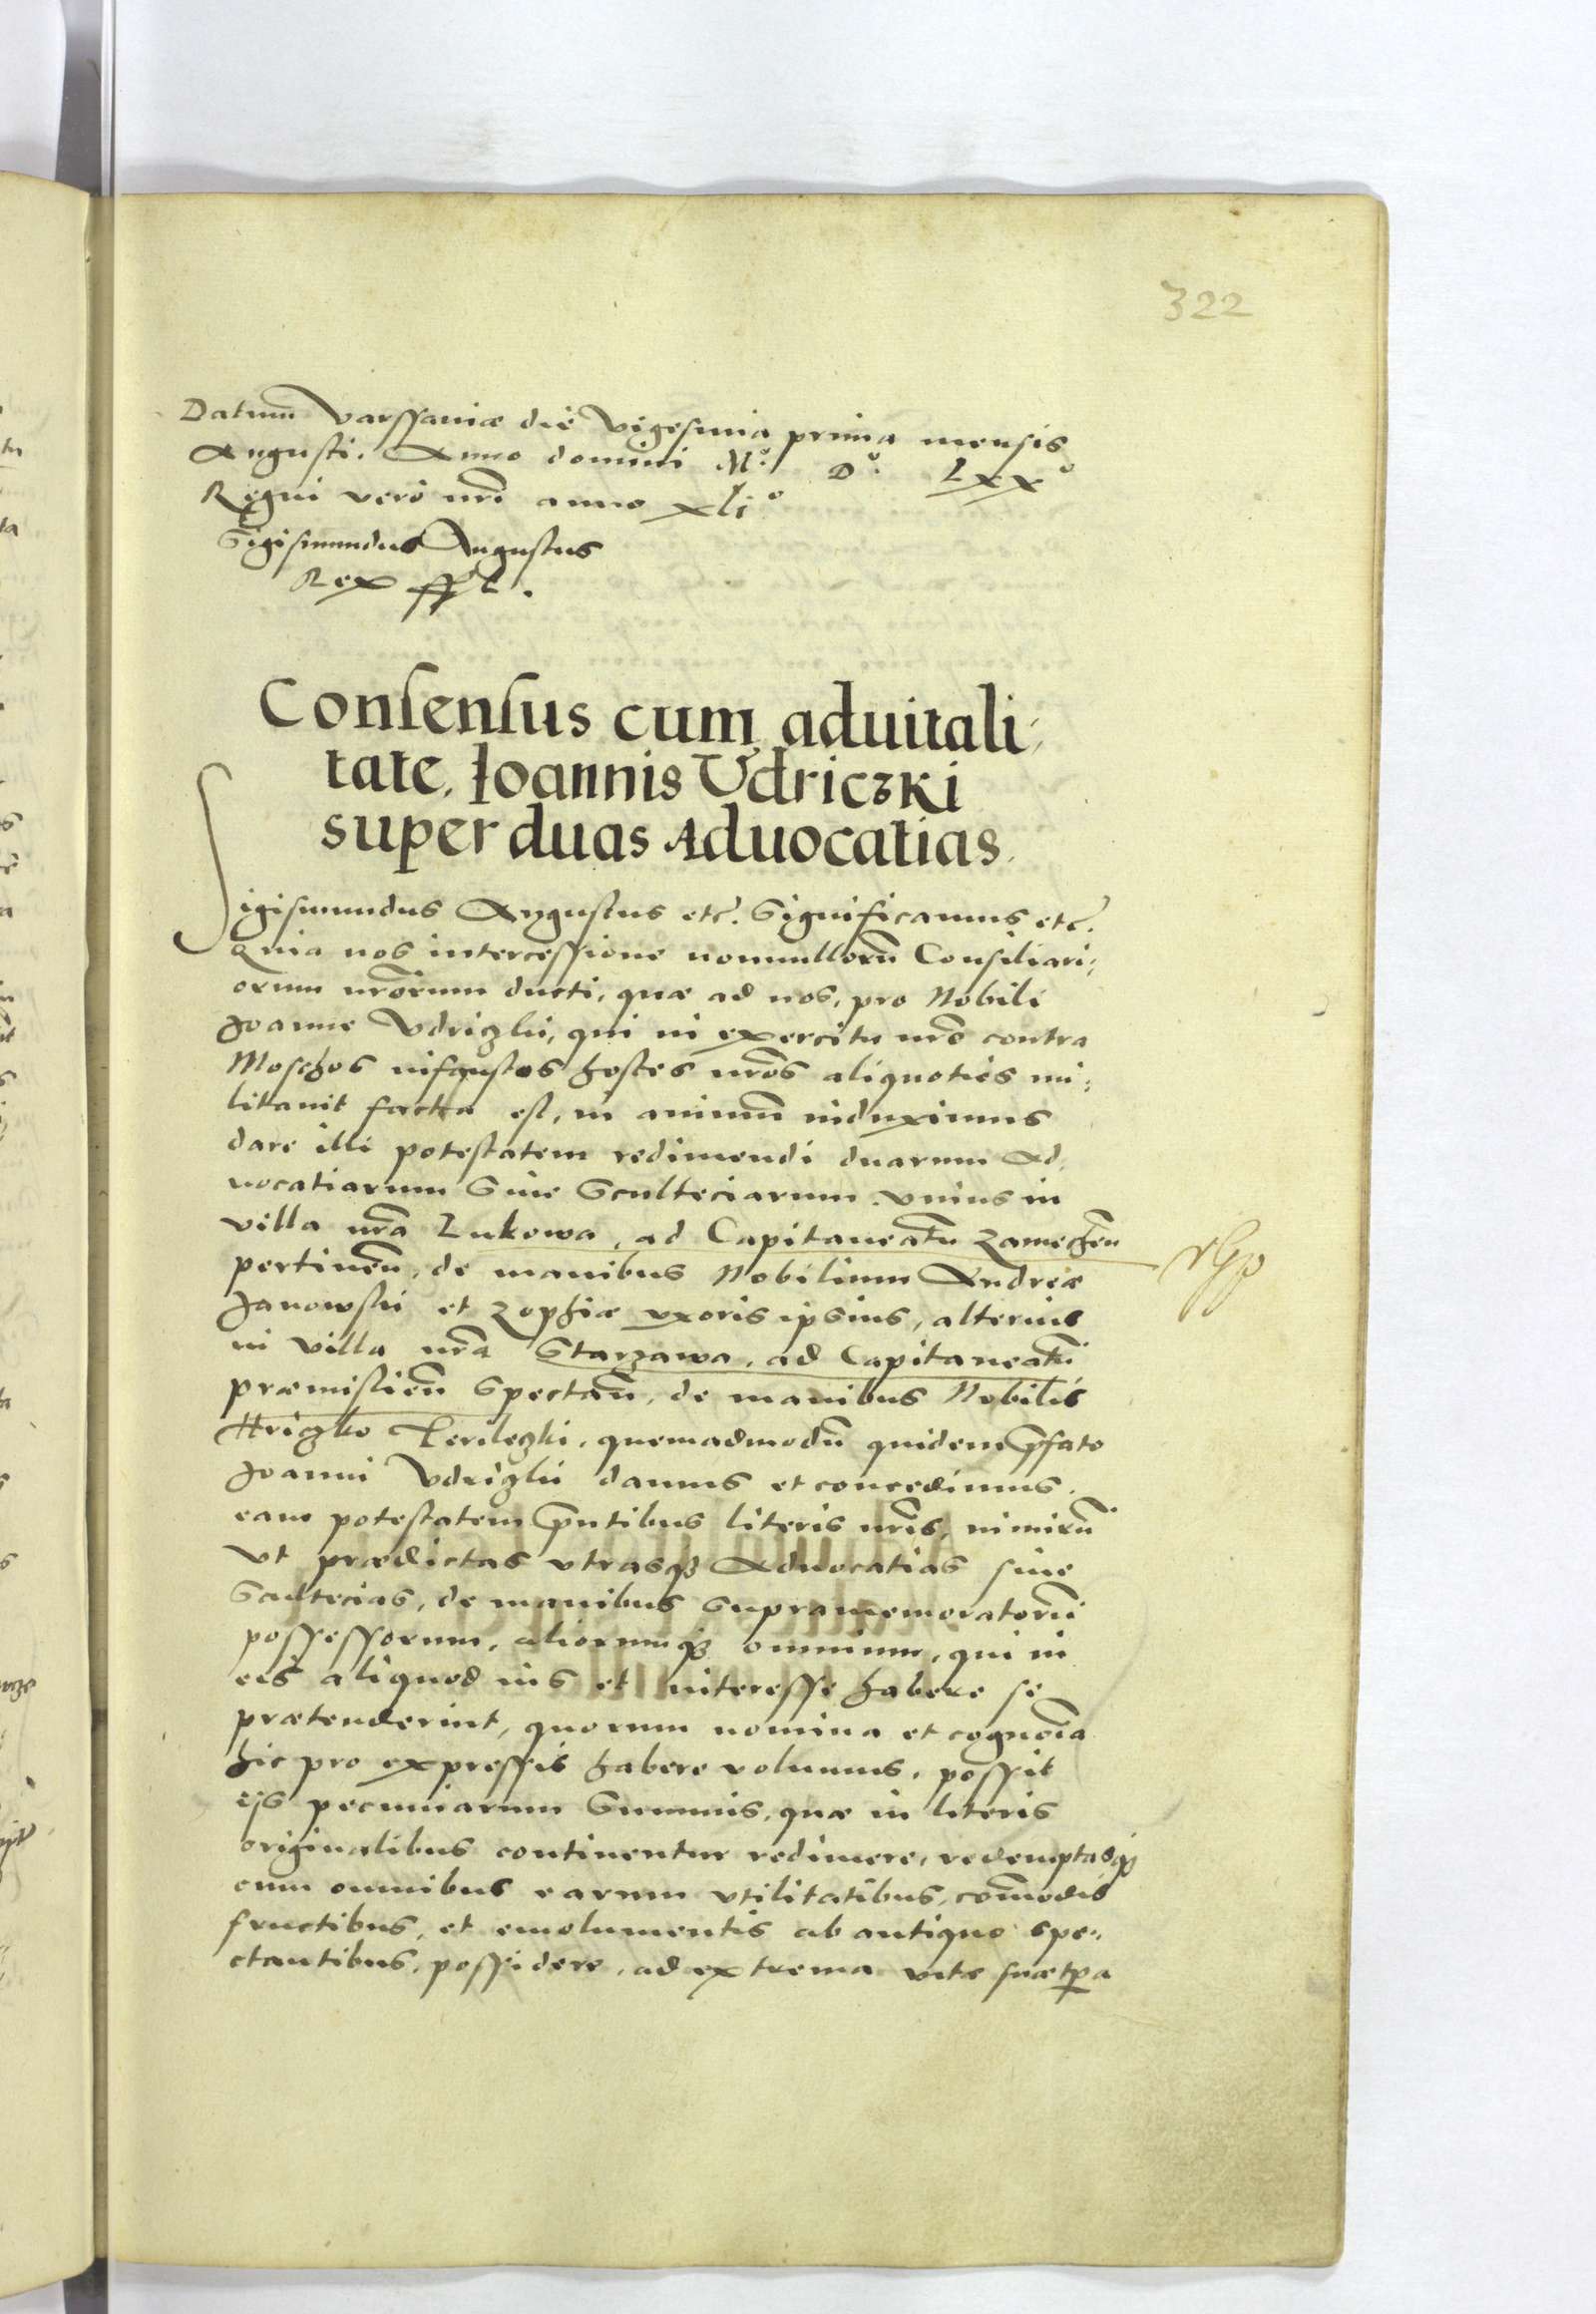 322
Datum Varssaviæ die Vigesima prima mensis
Augusti. Anno domini M.º D.º Lxxº
Regni vero nrī anno xliº
Sigismundus Augustus
Rex
Consensus cum aduitali⸗
tate. Ioannis Vdriczki
super duas Aduocatias.
Sigismundus Augustus etc. Significamus etc.
Quia nos intercessione nonnullorū Consiliari⸗
orum nr̄orum ducti, quæ ad nos, pro Nobili
Joanne Vdriczki, qui in exercitu nrō contra
Moschos infaustos hostes nrōs aliquoties mi⸗
litauit facta est, in animū induximus
dare illi potestatem redimendi duarum Ad⸗
uocatiarum Siue Sculteciarum. vnius in
villa nrā Lukowa, ad Capitaneatū Zamechen̄
pertinen̄, de manibus Nobilium Andreæ
Janowski et Zophiæ vxoris ipsius, alterius
in villa nrā Starzawa, ad Capitaneatū
præmislien̄ Spectan̄, de manibus Nobilis
Hriczko Terleczki, quemadmodū quidem p̄fato
Joanni Vdriczki damus et concedimus.
eam potestatem p̄ntibus literis nrīs, nimirū
Vt prædictas vtrasq₃ Aduocatias siue
Scultecias, de manibus supramemoratorū
possessorum, aliorumq₃ omnium, qui in
eis aliquod ius et interesse habere se
prætenderint, quorum nomina et cognoīa
hic pro expressis habere volumus, possit
ijs pecuniarum Summis, quæ in literis
originalibus continentur redimere, redemptasq₃
cum omnibus earum vtilitatibus, com̄odis
fructibus, et emolumentis ab antiquo spe⸗
ctantibus, possidere, ad extrema vitæ suæ tp̄a